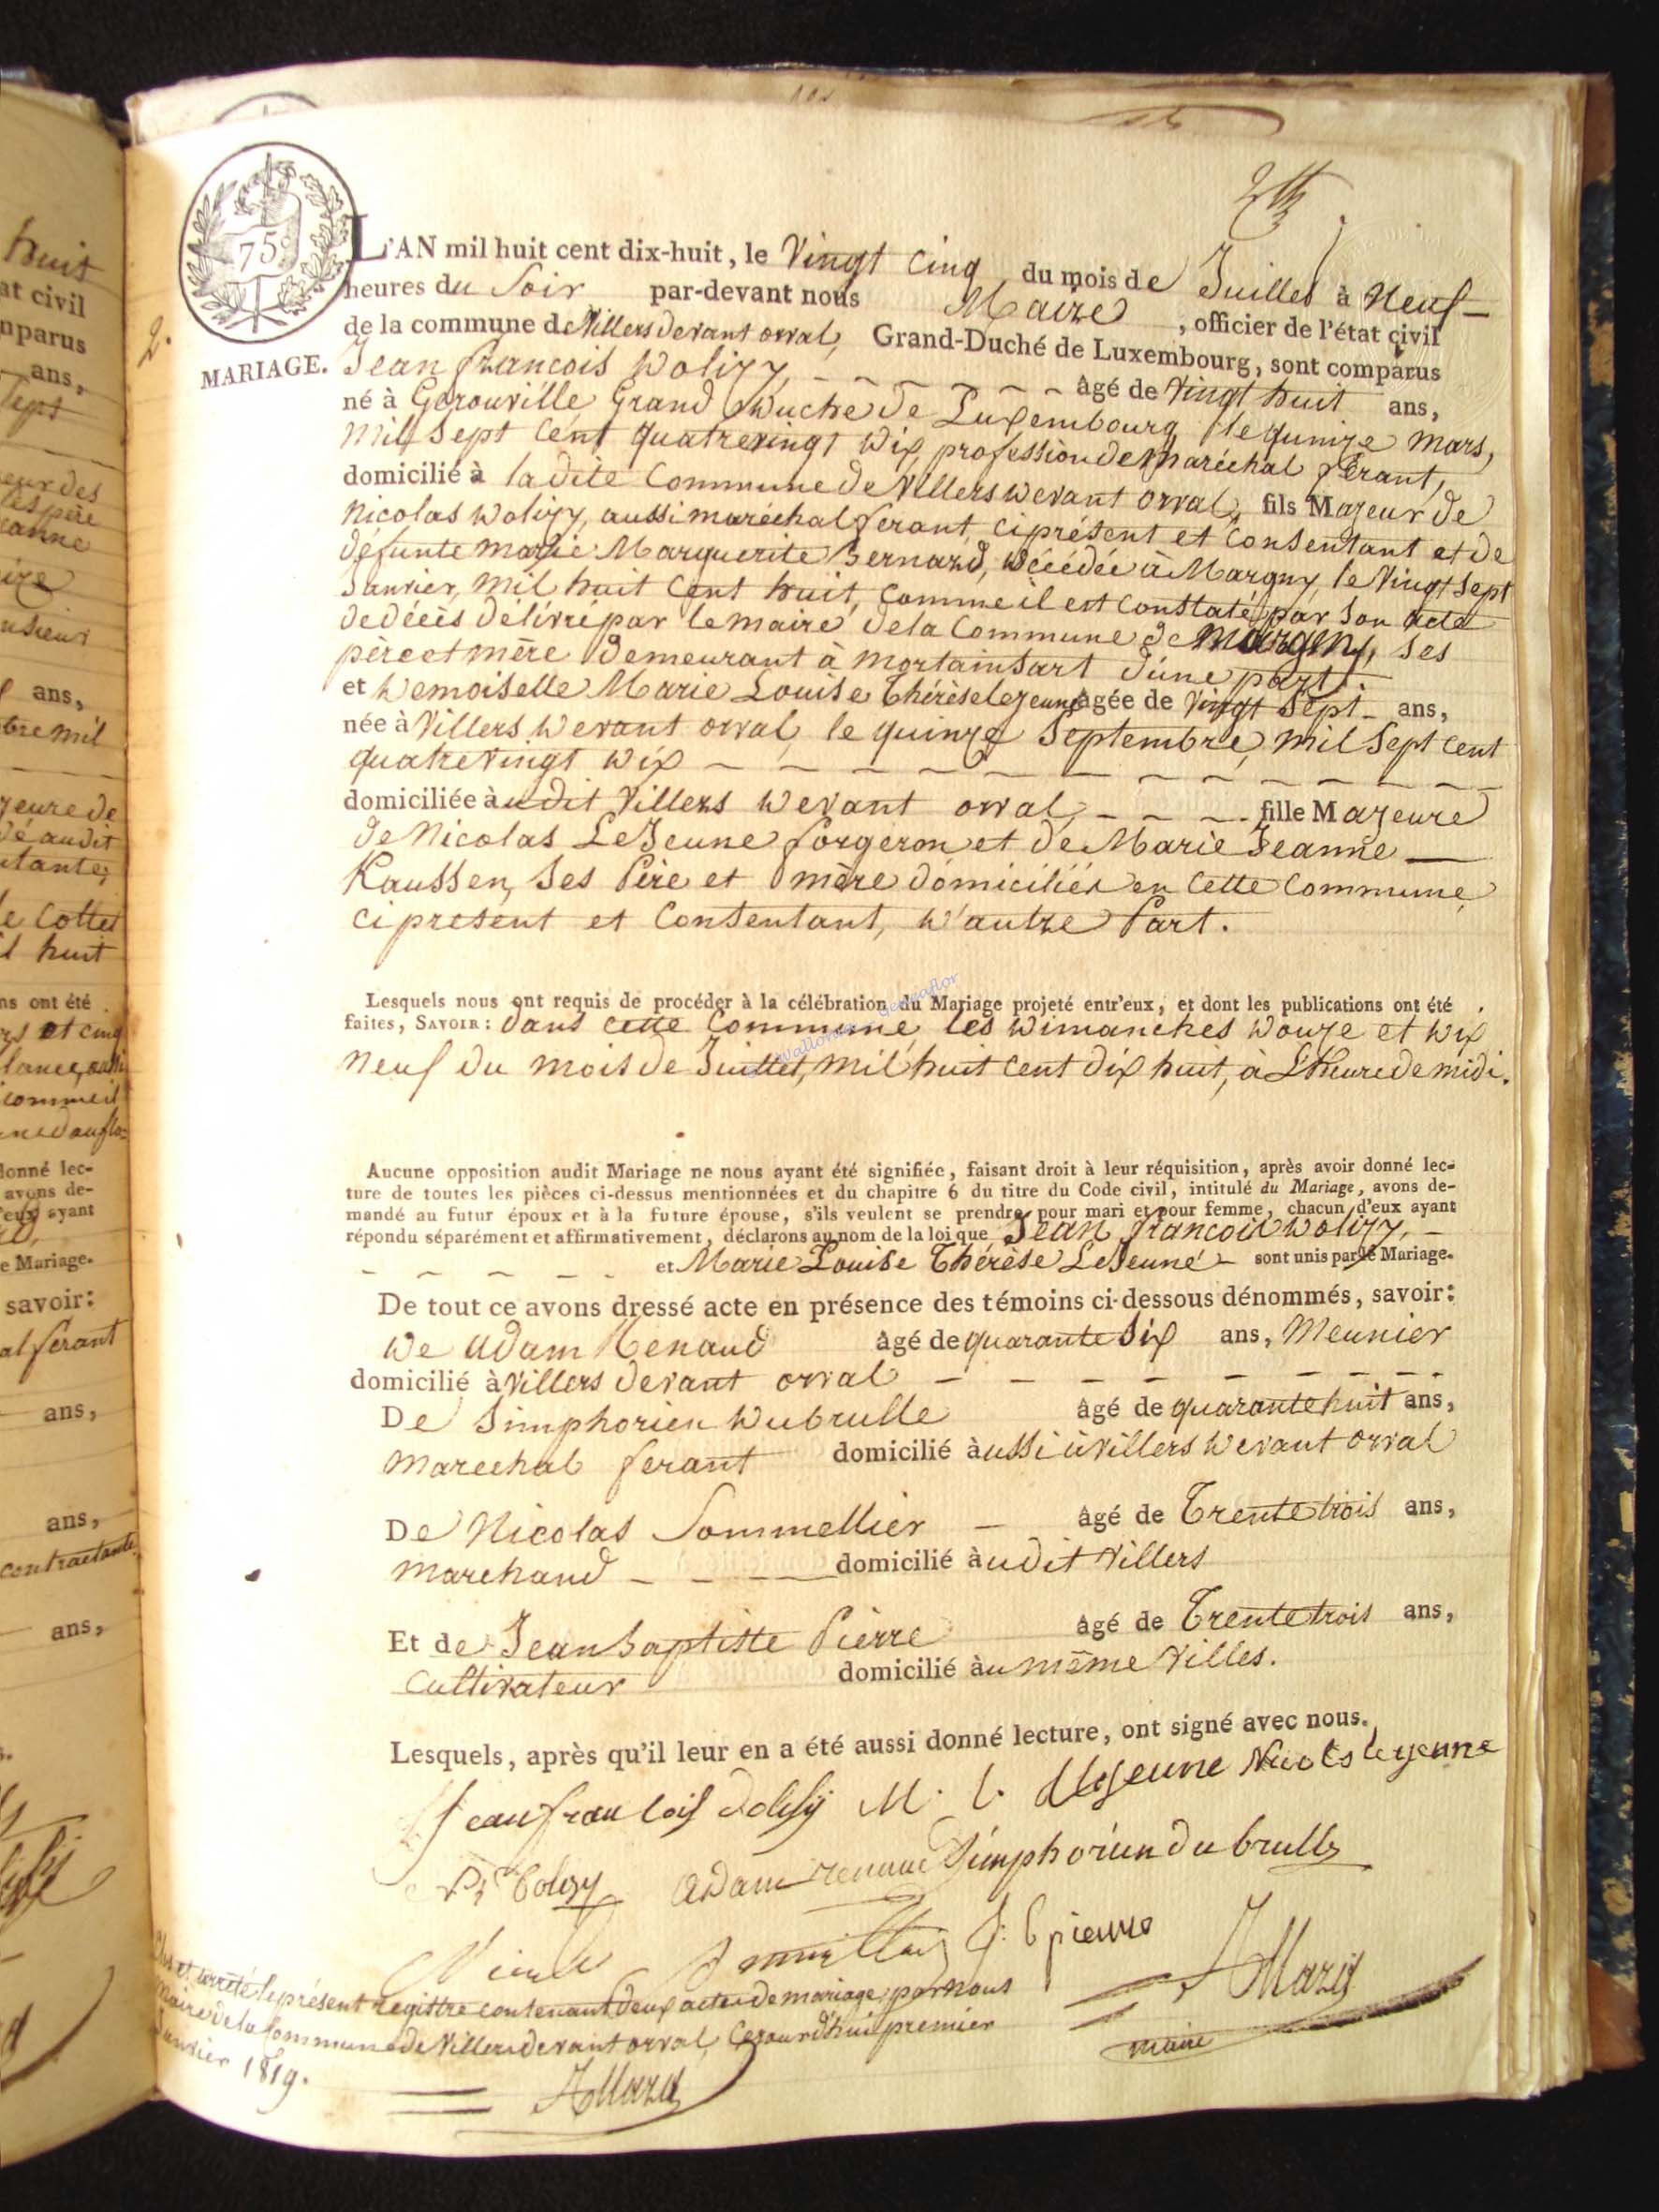 75
2.
MARIAGE.
L'AN mil huit cent dix-huit, le Vingt Cinq du mois de Juillet à Neuf
heures du Soir par-devant nous Maire, officier de l'état civil
de la commune de Villers devant orval, Grand-Duché de Luxembourg, sont comparus
Jean françois Wolizy, âgé de Vingt huit ans,
né à Gérouville, Grand Duché de Luxembourg, le quinze Mars,
mil Sept Cent quatrevingt dix, profession de Maréchal ferant,
domicilié à la dite Commune de Villers devant orval, fils Majeur de
Nicolas Wolizy, aussi maréchal ferant, ci présent et Consentant et de
défunte marie Marguerite Bernard, décédée à Margny, le Vingt Sept
Janvier, mil huit Cent huit, Comme il est Constaté par Son acte
de décès délivré par le maire de la Commune de Margny, Ses
père et mère demeurant à Mortainsart d'une part.
et Demoiselle Marie Louise Thérèse Lejeune agée de Vingt Sept ans,
née à Villers devant orval, le quinze Septembre, Mil Sept Cent
quatrevingt dix
domiciliée àudit Villers devant orval, fille Majeure
de Nicolas LeJeune forgeron et de Marie Jeanne
Kaussen, Ses Père et mère domiciliés en Cette Commune
ci présent et Consentant, d'autre Part.
Lesquels nous ont requis de procéder à la célébration du Mariage projeté entr'eux, et dont les publications ont été
faites, SAVOIR: dans cette Commune, les dimanches douze et dix
neuf du mois de Juillet, mil huit cent dix huit, à L'heure de midi.
Aucune opposition audit Mariage ne nous ayant été signifiée, faisant droit à leur réquisition, après avoir donné lec-
ture de toutes les pièces ci-dessus mentionnées et du chapitre 6 du titre du Code civil, intitulé du Mariage, avons de-
mandé au futur époux et à la future épouse, s'ils veulent se prendre pour mari et pour femme, chacun d'eux ayant
répondu séparément et affirmativement, déclarons au nom de la loi que Jean françois Wolizy,
et Marie Louise Thérèse LeJeune sont unis par le Mariage.
De tout ce avons dressé acte en présence des témoins ci-dessous dénommés, savoir:
De Adam Renaud âgé de quarante Six ans, Meunier
domicilié à Villers devant orval
De Simphorien Dubrulle âgé de quarante huit ans,
Marechal ferant domicilié àussi à Villers devant orval
De Nicolas Sommellier âgé de Trente trois ans,
Marchand domicilié àudit Villers
Et de Jean Baptiste Pierre âgé de Trente trois ans,
Cultivateur domicilié àu même Villes.
Lesquels, après qu'il leur en a été aussi donné lecture, ont signé avec nous.
Jean francois M. l. LeJeune Nicolas lejeune
Adam renaud Simphorien du brulle
J: b pierre
maire
et arrêté le présent registre contenant deux actes de mariage, par nous
maire de la Commune de Villers devant orval, Cejourd'hui premier
Janvier 1819.
huit
at civil
nparus
ans,
Sept
ans,
bre mil
jeure de
é audit
le Collet
il huit
ns ont été
et cinq
donné lec-
avons de-
ayant
e Mariage.
savoir:
al ferant
ans,
ans,
contractante
ans,